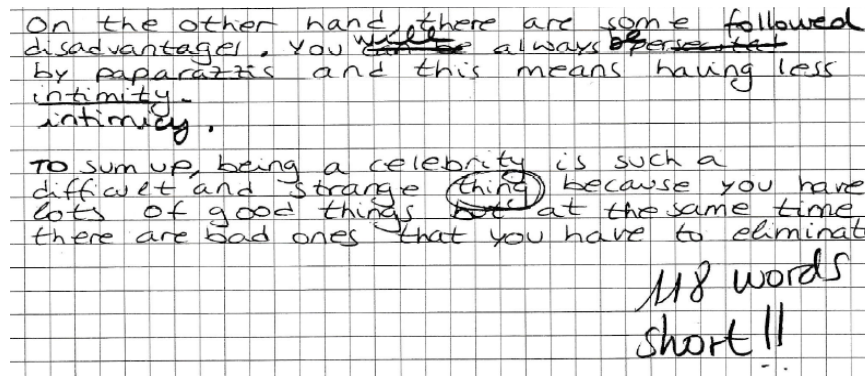 On the other hand, there are some followed
disadvantages. You will always be
by paparazzis and this means having less
intimity.
intimicy.
To sum up, being a celebrity is such a
difficult and strange thing because you have
lots of good things but at the same time
there are bad ones that you have to eliminat
118 words
short!!